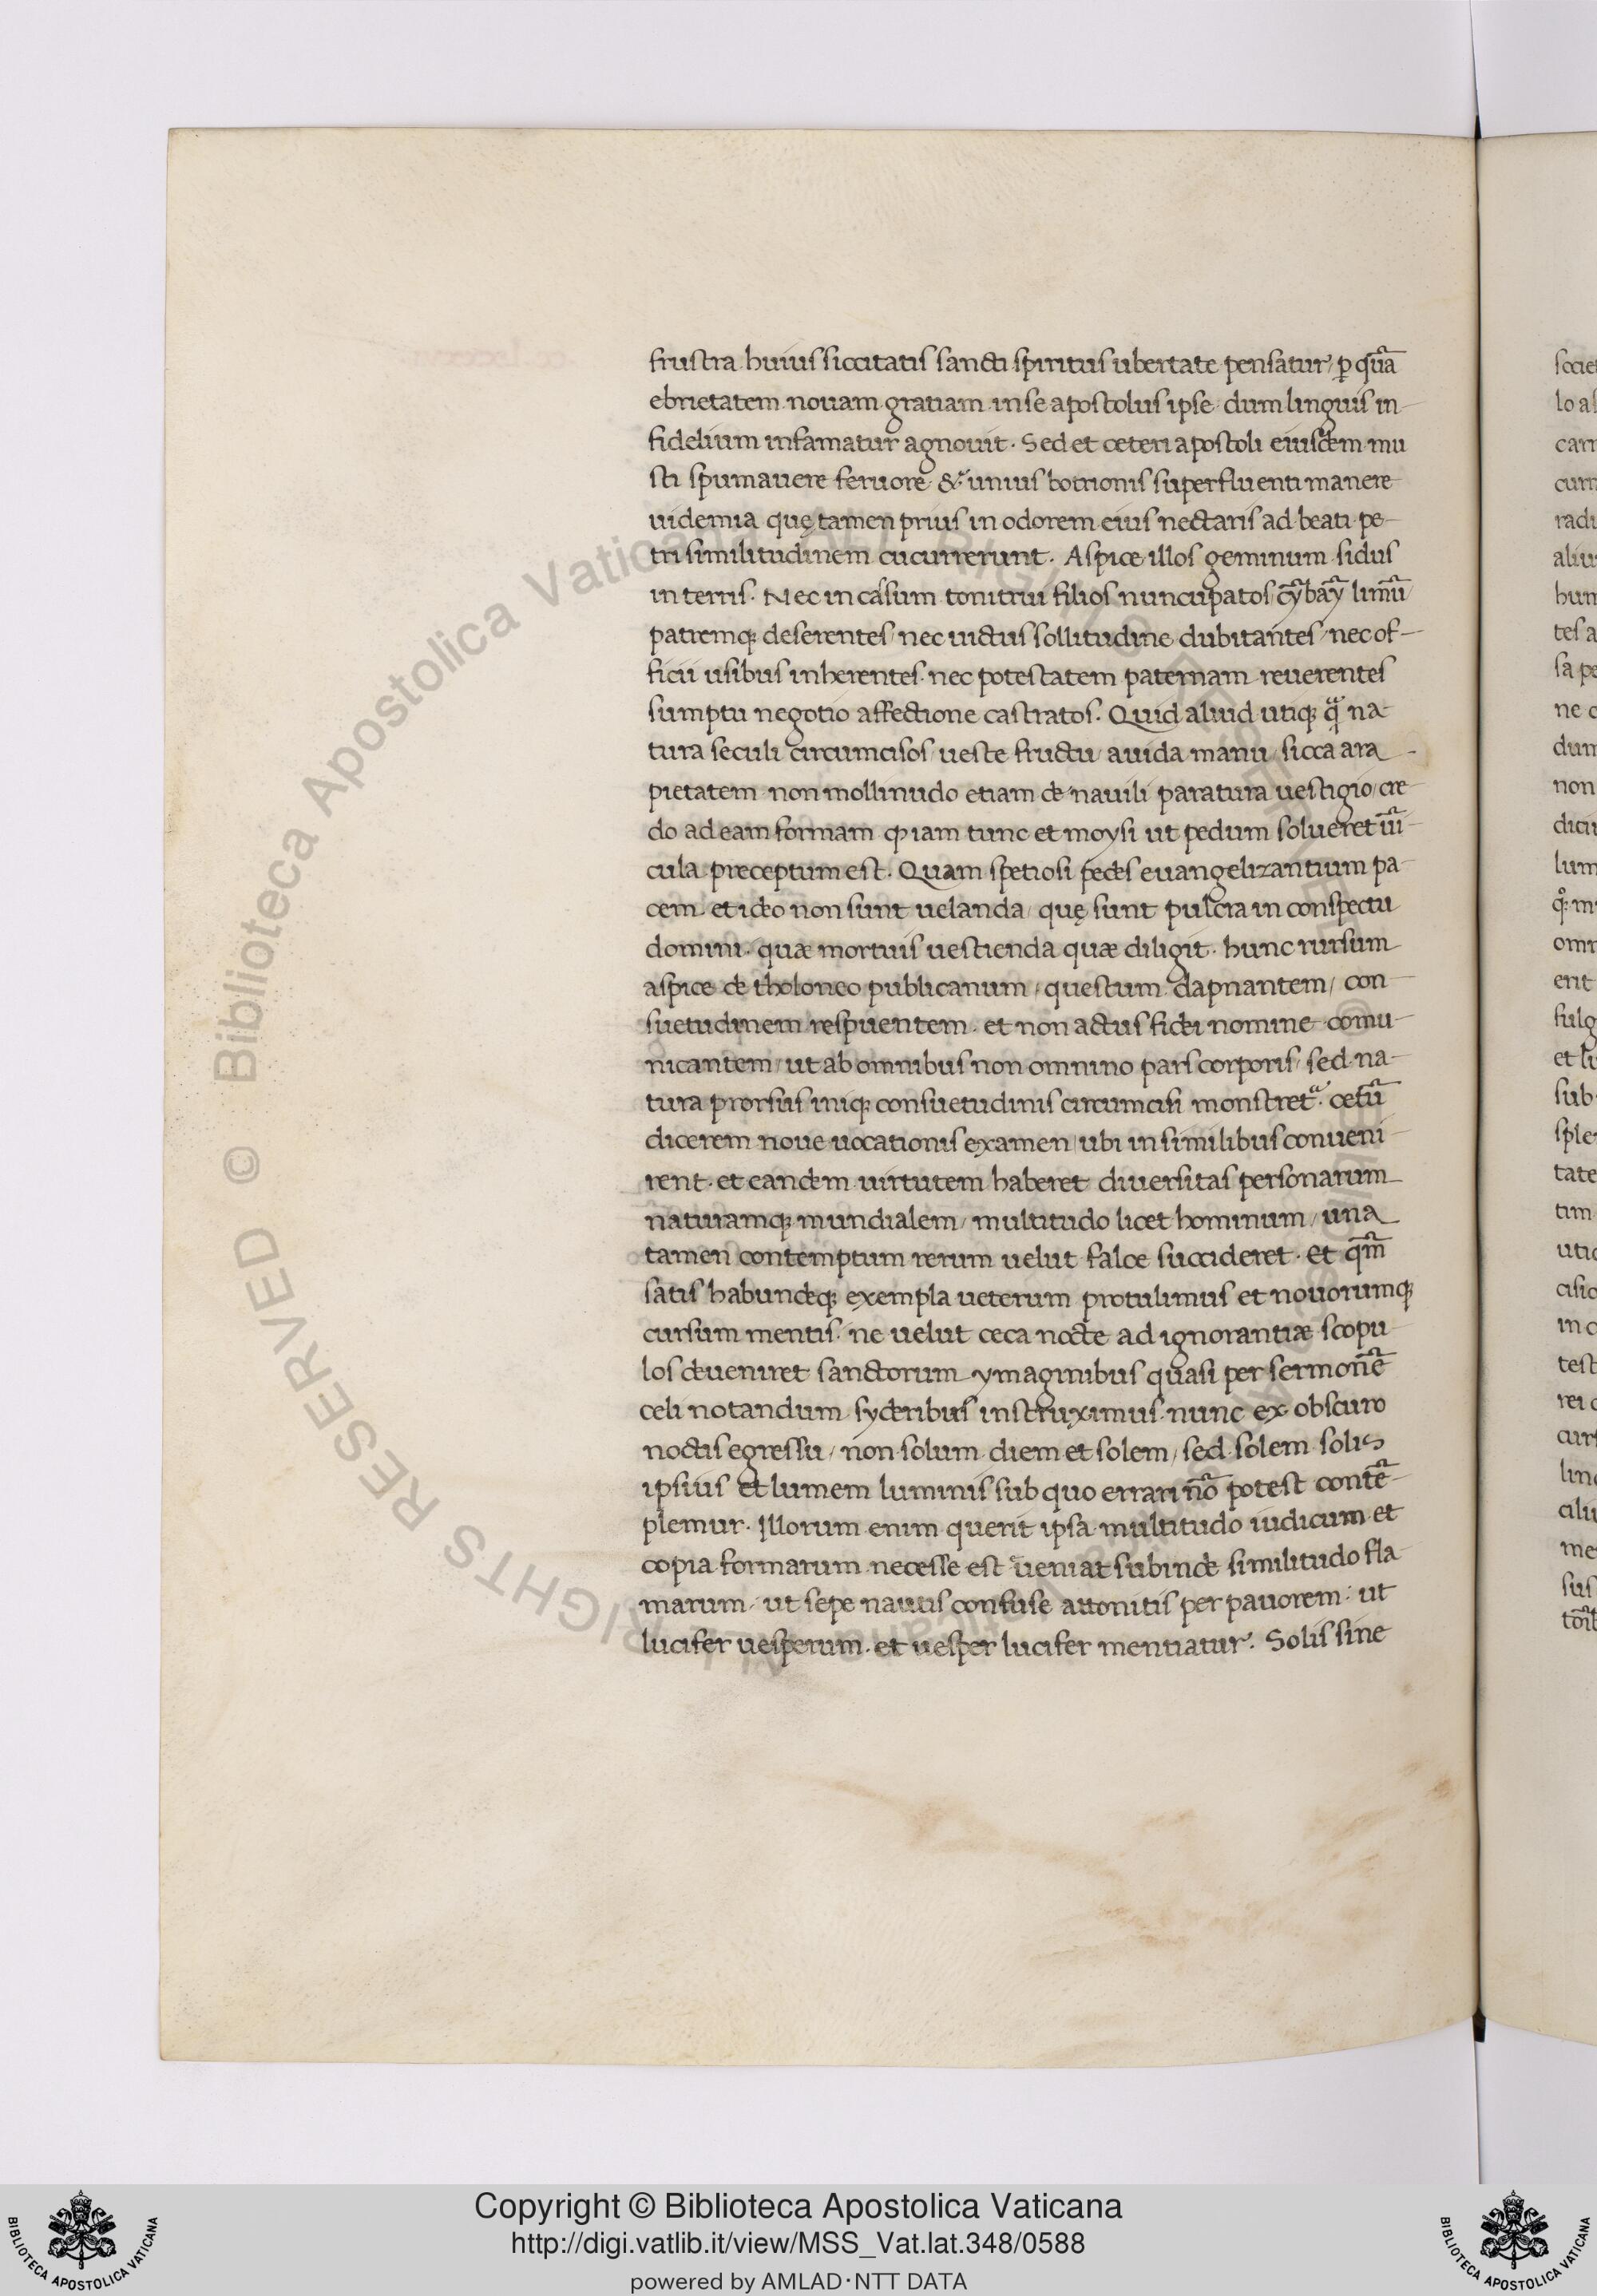 frustra huius siccitatis sancti spiritus ubertate pensatur, ꝑ quā
ebrietatem nouam gratiam in se apostolus ipse dum linguis in-
fidelium infamatur agnouit. Sed et ceteri apostoli eiusdem mu
sti spumauere feruore & unius botrionis superfluenti manere
uidemia quę tamen prius in odorem eius nectaris ad beati pe-
tri similitudinem cucurrerunt. Aspice illos geminum sidus
in terris. Nec in casum tonitrui filios nuncupatos
patremq; deserentes, nec uictus sollitudine dubitantes, nec of-
ficii usibus inherentes. nec potestatem paternam reuerentes
sumptu negotio affectione castratos. Quid aliud utiq; na-
tura seculi circumcisos, ueste fructu, auida manu, sicca ara
pietatem non mollinudo etiam de nauili paratura uestigio, cre
do ad eam formam ꝙ iam tunc et moysi ut pedum solueret uī-
cula preceptum est. Quam spetiosi pedes euangelizantium pa-
cem. et ideo non sunt uelanda, quę sunt pulcra in conspectu
domini. quæ mortuis uestienda quæ diligit. hunc rursum
aspice de tholoneo publicanum, questum dapnantem, con-
suetudinem respuentem. et non actus fidei nomine comu-
nicantem, ut ab omnibus non omnino pars corporis, sed na-
tura prorsus iniq; consuetudinis circumcisi monstret. cetū
dicerem noue uocationis examen, ubi in similibus conueni-
rent. et eandem uirtutem haberet diuersitas personarum
naturamq; mundialem, multitudo licet hominum, una
tamen contemptum rerum uelut falce succideret. et qm̄
satis habundeq; exempla ueterum protulimus et nouorumq;
cursum mentis. ne uelut ceca nocte ad ignorantiæ scopu-
los deueniret sanctorum ymaginibus quasi per sermonē
celi notandum syderibus instruximus. nunc ex obscuro
noctis egressu, non solum diem et solem, sed solem solis
ipsius et lumem luminis sub quo errari nō potest contē-
plemur. Illorum enim querit ipsa multitudo iudicum et
copia formarum necesse est ueniat subinde similitudo fla-
marum, ut sepe nautis confuse attonitis per pauorem. ut
lucifer uesperum. et uesper lucifer mentiatur. Solis sine
Copyright © Biblioteca Apostolica Vaticana
http://digi.vatlib.it/view/MSS_Vat.lat.348/0588
powered by AMLAD·NTT DATA